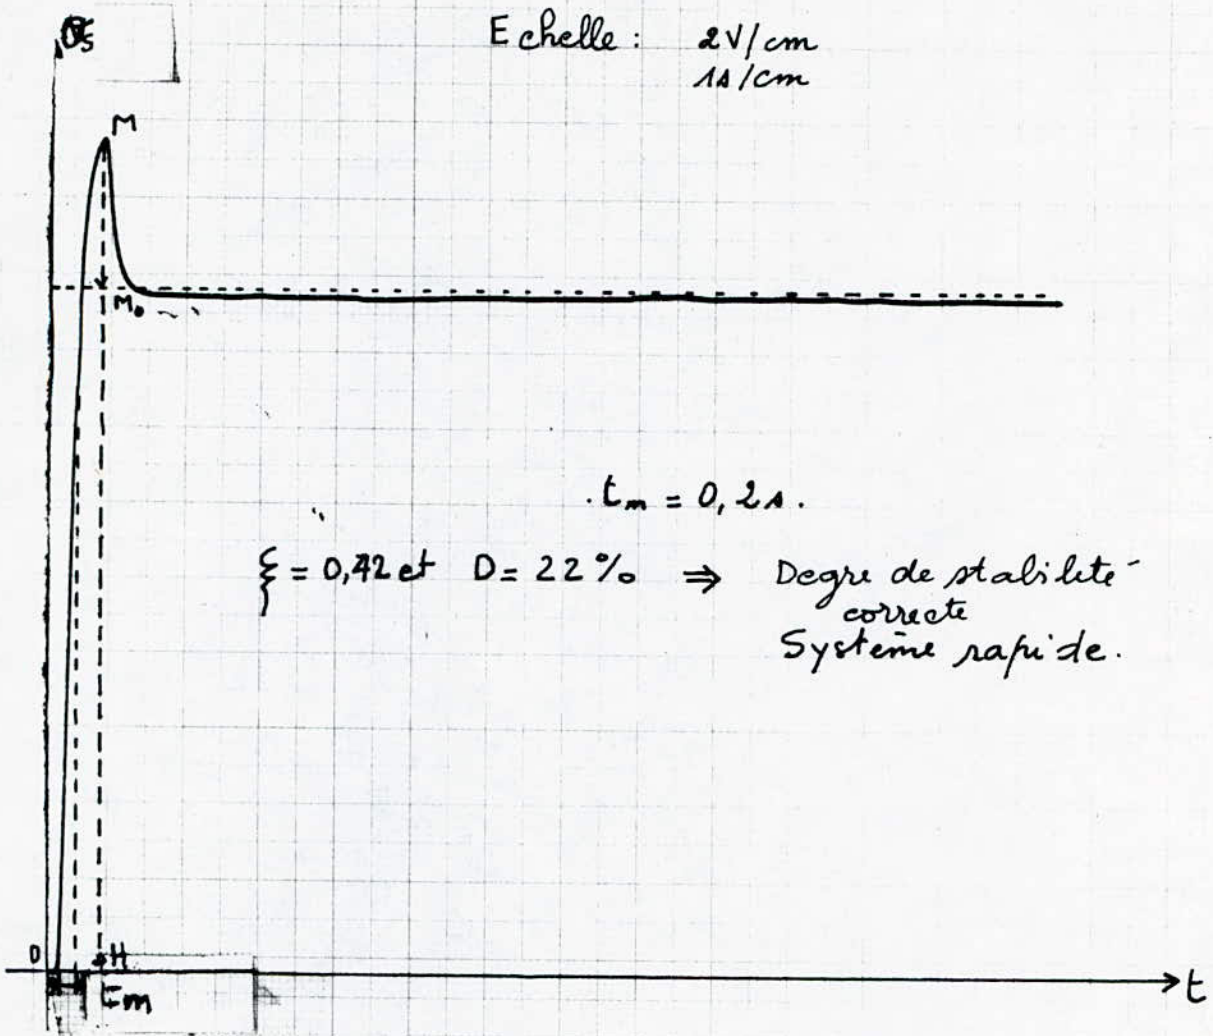 θs
Echelle : 2V/cm
1s/cm
M
M₀
.tm = 0,2s.
ξ = 0,42 et D = 22 % ⇒ Degre de stabilité
correcte
Système rapide.
0
H
tm
t